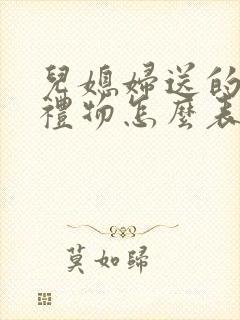 兒媳婦送的
禮物怎麼表
莫如歸